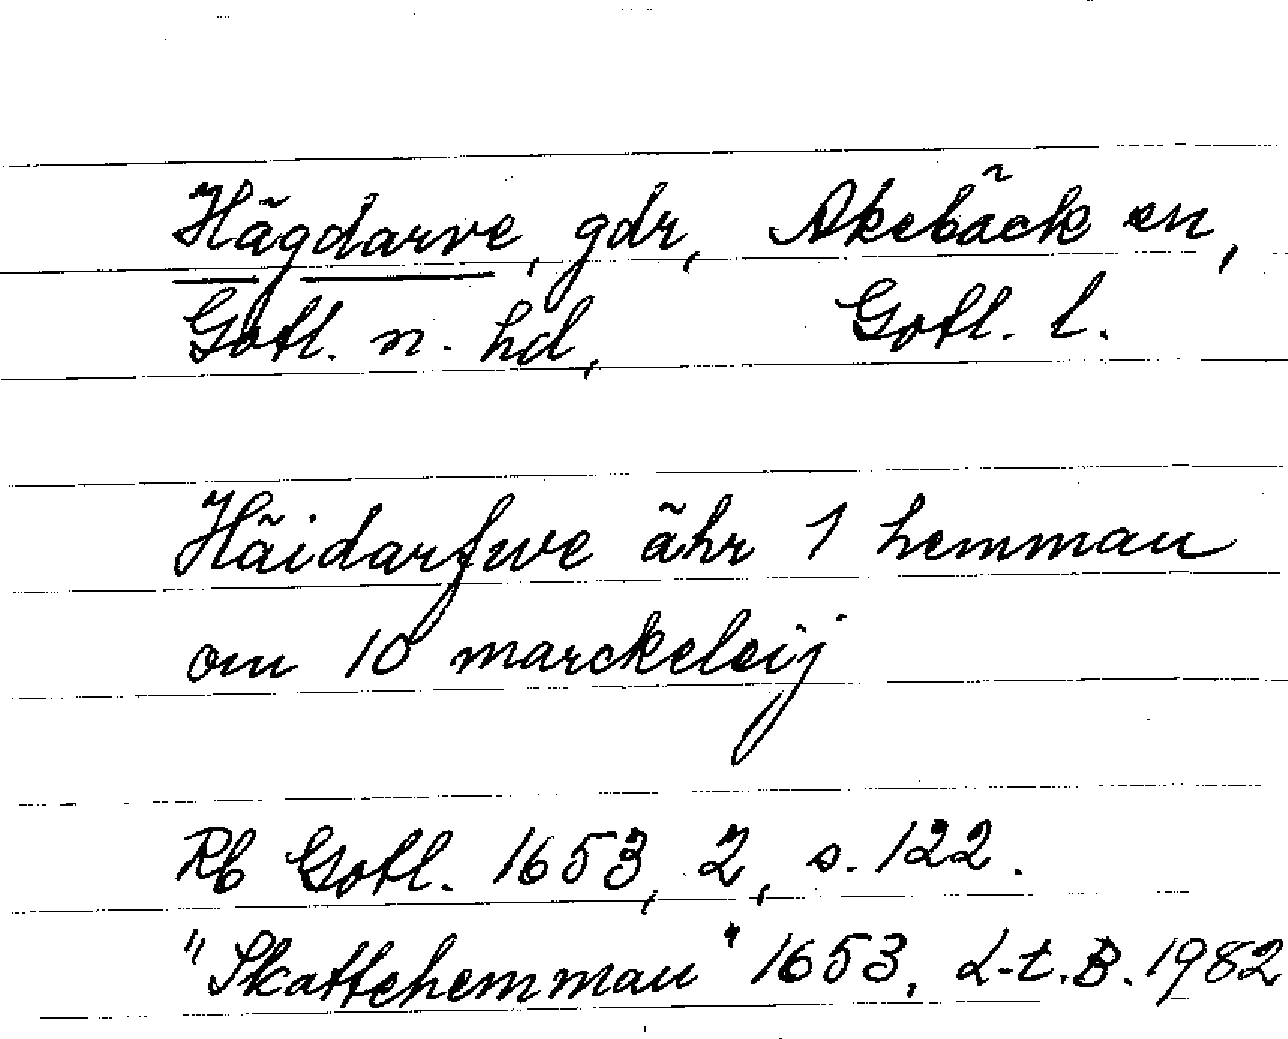 Hägdarve, gdr, Akebäck sn,
Gotl. n. hd, Gotl. l.
Häidarfwe ähr 1 hemman
om 10 marckeleij
Rb Gotl. 1653, 2, s. 122.
"Skattehemman" 1653, L-t. B. 1982